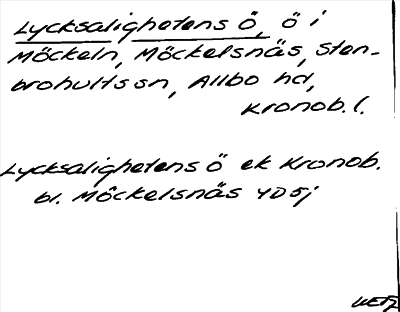 Lycksalighetens Ö, ö i
Möckeln, Möckelsnäs, Sten-
brohults sn, Allbo hd,
Kronob. l.
Lycksalighetens Ö ek Kronob.
bl. Möckelsnäs YD 5j